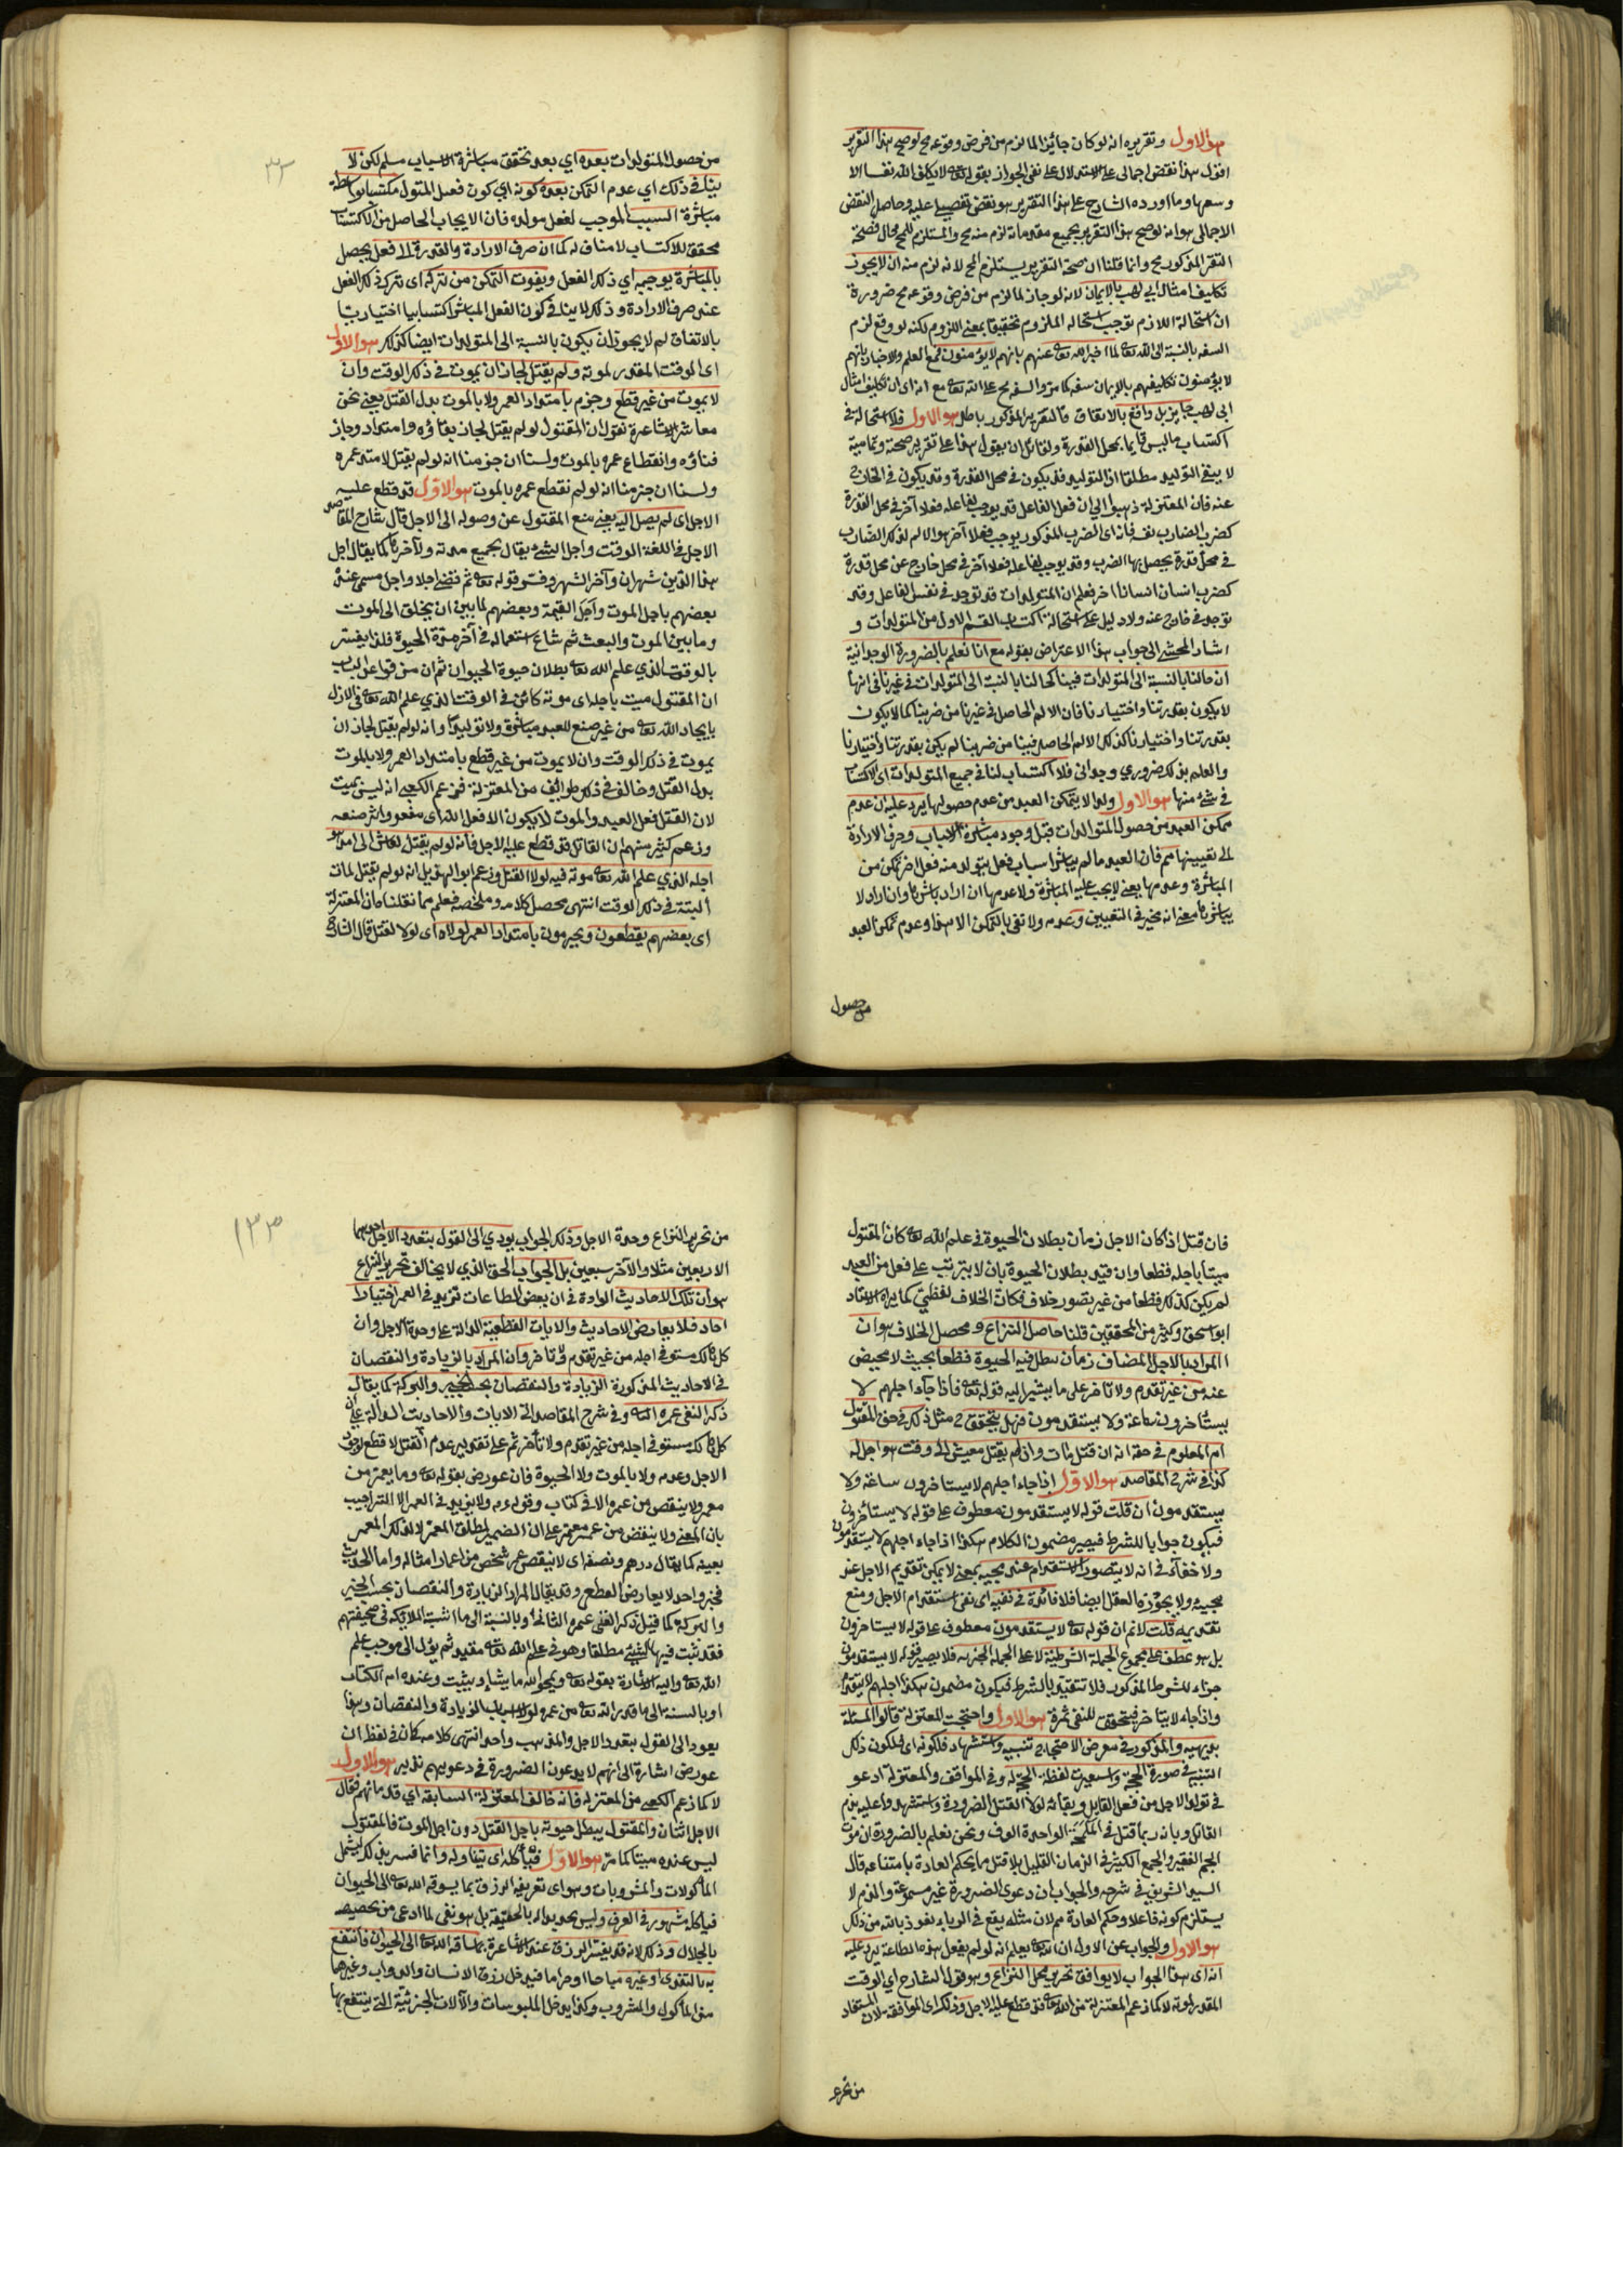 هو الاول وتقريره انه لو كان جائزا لما لزم من فرض وقوعه مح لو صح هذا التقرير
اقول هذا نقض اجمالى على الاستدلال على نفى الجواز بقوله تعا لا يكلف الله نفسا الا
وسعها وما اورده الشارح على هذا التقرير هو نقض تفصيلى عليه وحاصل النقض
الاجمالى هو انه لو صح هذا التقرير بجميع مقدماته لزم منه مح والمستلزم للمح محال فصحة
التقرير المذكور مح وانما قلنا ان صحة التقرير يستلزم المح لانه لزم منه ان لا يجوز
تكليف امثال ابى لهب بالايمان لانه لو جاز لما لزم من فرض وقوعه مح ضرورة
ان استحالة اللازم توجب استحالة الملزوم تحقيقا بمعنى اللزوم لكنه لو وقع لزم
السفه بالنسبة الى الله تعا لما اخبر الله تعا عنهم بانهم لا يؤمنون فمع العلم والاخبار بانهم
لا يؤمنون تكليفهم بالايمان سفه كما مر والسفه مح على الله تعا مع انه اى ان تكليف امثال
ابى لهب جايز بل واقع بالاتفاق فالتقرير المذكور باطل هو الاول فلاستحالة فى
اكتساب ما ليس قايما بمحل القدرة ولقائل ان يقول هذا على تقرير صحته وتماميته
لا ينفى التوليد مطلقا اذ التوليد قد يكون فى محل القدرة وقد يكون فى الخارج
عنه فان المعتزلة ذهبوا الى ان فعل الفاعل قد يوجب لفاعله فعلا آخر فى محل القدرة
كضرب الضارب نفسه فانه اى الضرب المذكور يوجب فعلا آخر هو الالم لذلك الضارب
فى محل قدرة يحصل بها الضرب وقد يوجب لفاعله فعلا آخر فى محل خارج عن محل قدرة
كضرب انسان انسانا اخر فعلم ان المتولدات قد توجد فى نفس الفاعل وقد
توجد فى خارج عنه ولا دليل على استحالة اكتساب القسم الاول من المتولدات و
اشار المحشى الى جواب هذا الاعتراض بقوله مع انا نعلم بالضرورة الوجدانية
ان حالنا بالنسبة الى المتولدات فينا كحالنا بالنسبة الى المتولدات فى غيرنا فى انها
لا يكون بقدرتنا واختيارنا فان الالم الحاصل فى غيرنا من ضربنا كما لا يكون
بقدرتنا واختيارنا كذلك الالم الحاصل فينا من ضربنا لم يكن بقدرتنا واختيارنا
والعلم بذلك ضرورى وجدانى فلا اكتساب لنا فى جميع المتولدات اى الاكتساب
فى شئ منها هو الاول ولهذا لا يتمكن العبد من عدم حصولها يرد عليه ان عدم
تمكن العبد من حصول المتوالدات قبل وجود مباشرة الاسباب وصرف الارادة
الى تعيينها مم فان العبد ما لم يباشر اسباب فعل يتولد منه فعل اخر تمكن من
المباشرة وعدمها يعنى لا يجب عليه المباشرة ولا عدمها ان اراد باشرها وان اراد لا
يباشرها بمعنى انه مخير فى التعيين وعدمه ولا تعنى بالتمكن الا هذا وعدم تمكن العبد
من حصول
٣٣
من حصول المتولدات بعده اى بعد تحقق مباشرة الاسباب مسلم لكن لا
ينافى ذلك اى عدم التمكن بعده كونه اى كون فعل المتولد مكتسبا بواسطة
مباشرة السبب الموجب لفعل مولده فان الايجاب الحاصل من الاكتساب
محقق للاكتساب لا مناف له كما ان صرف الارادة والقدرة الى فعل يحصل
بالمباشرة يوجبه اى ذلك الفعل ويفوت التمكن من تركه اى ترك ذلك الفعل
عند صرف الارادة وذلك لا ينافى كون الفعل المباشر اكتسابيا اختياريا
بالاتفاق لم لا يجوز ان يكون بالنسبة الى المتولدات ايضا كذلك هو الاول
اى الوقت المقدر لموته ولم يقتل لجاز ان يموت فى ذلك الوقت وان
لا يموت من غير قطع وجزم بامتداد العمر ولا بالموت بدل القتل يعنى نحن
معاشر الاشاعرة نقول ان المقتول لو لم يقتل لجاز بقاؤه وامتداد وجاز
فناؤه وانقطاع عمره بالموت ولسنا ان جزمنا انه لو لم يقتل لامتد عمره
ولسنا ان جزمنا انه لو لم نقطع عمره بالموت هو الاول قد قطع عليه
الاجل اى لم يصل اليه يعنى منع المقتول عن وصوله الى الاجل قال شارح المقاصد
الاجل فى اللغة الوقت واجل الشئ يقال بجميع مدته ولآخرها كما يقال اجل
هذا الدين شهران وآخر الشهر وفسر قوله تعا ثم قضى اجلا واجل مسمى عنده
بعضهم باجل الموت وأجل القيمة وبعضهم لما بين ان يخلق الى الموت
وما بين الموت والبعث ثم شاع استعماله فى آخر مدة الحيوة فلذا يفسر
بالوقت الذى علم الله تعا بطلان حيوة الحيوان ثم ان من قواعد الباب
ان المقتول ميت باجله اى موته كائن فى الوقت الذى علم الله تعا فى الازل
بايجاد الله تعا من غير صنع للعبد مباشرة ولا توليدا وانه لو لم يقتل لجاز ان
يموت فى ذلك الوقت وان لا يموت من غير قطع بامتداد العمر ولا بالموت
بدل القتل وخالف فى ذلك طوائف من المعتزلة فزعم الكعبى انه ليس بميت
لان القتل فعل العبد والموت لا يكون الا فعل الله اى مفعوله واثر صنعه
وزعم كثير منهم ان القاتل قد قطع عليه الاجل فانه لو لم يقتل لعاش الى امد هو
اجله الذى علم الله تعا موته فيه لولا القتل وزعم ابو الهذيل انه لو لم يقتل لمات
ألبتة فى ذلك الوقت انتهى محصل كلامه وملخصه فعلم مما نقلناه ان المعتزلة
اى بعضهم يقطعون ويجزمون بامتداد العمر لولاه اى لولا القتل قال الشارح
فان قتل اذا كان الاجل زمان بطلان الحيوة فى علم الله تعا كان المقتول
ميتا باجله قطعا وان قيد بطلان الحيوة بان لا يترتب على فعل من العبد
لم يكن كذلك قطعا من غير تصور خلاف فكان الخلاف لفظى كما يراه الاستاد
ابو اسحق وكثير من المحققين قلنا حاصل النزاع ومحصل الخلاف هو ان
المراد بالاجل المضاف زمان تبطل فيه الحيوة قطعا بحيث لا محيص
عنه من غير تقدم ولا تاخر على ما يشير اليه قوله تعا فاذا جاء اجلهم لا
يستأخرون ساعة ولا يستقدمون فهل يتحقق مثل ذلك فى حق المقتول
ام المعلوم فى حقه انه ان قتل مات وان لم يقتل يعيش الى وقت هو اجل له
كذا فى شرح المقاصد هو الاول اذا جاء اجلهم لا يستاخرون ساعة ولا
يستقدمون ان قلت قوله لا يستقدمون معطوف على قوله لا يستأخرون
فيكون جوابا للشرط فيصير مضمون الكلام هكذا اذا جاء اجلهم لا يستقدمون
ولا خفاء فى انه لا يتصور الاستقدام عند مجيئه بمعنى لا يمكن تقديم الاجل عند
مجيئه ولا يجوزه العقل ايضا فلا فائدة فى نفيه اى نفى استقدام الاجل ومنع
تقديمه قلت لا نم ان قوله تعا لا يستقدمون معطوف على قوله لا يستاخرون
بل هو عطف على مجموع الجملة الشرطية لا على الجملة الجزئية فلا يصير قوله لا يستقدمون
جزاء للشرط المذكور فلا تتقيد بالشرط فيكون مضمون هكذا اجلهم لا يتقدم
واذا جاء لا يتاخر فتحقق للنفى ثمرة هو الاول واحتجت المعتزلة قالوا المسئلة
بديهية والمذكور فى معرض الاحتجاج تنبيه واستشهاد فلكونه اى فلكون ذلك
التنبيه فى صورة الحجة واستعيرت لفظة الحجة له وفى المواقف والمعتزلة ادعو
فى تولد الاجل من فعل القاتل وبقائه لولا القتل الضرورة واستشهدوا عليه بذم
القاتل وبانه ربما قتل فى الملحمة الواحدة الوف ونحن نعلم بالضرورة ان موت
الجم الغفير والجمع الكثير فى الزمان القليل بلا قتل مما يحكم العادة بامتناعه قال
السيد الشريف فى شرحه والجواب ان دعوى الضرورة غير مسموعة والذم لا
يستلزم كونه فاعلا وحكم العادة مم لان مثله يقع فى الوباء نعوذ بالله من ذلك
هو الاول والجواب عن الاول ان الله تعا يعلم انه لو لم يفعل هذه الطاعة يرد عليه
انه اى هذا الجواب لا يوافق تحرير محل النزاع وهو قول الشارح اى الوقت
المقدر لموته لا كما زعم المعتزلة من ان الله تعا قد قطع عليه الاجل وذلك اى الموافقة لان المستفاد
من تحرير
١٣٣
من تحرير النزاع وحدة الاجل وذلك الجواب يودى الى القول بتعدد الاجل احدهما
الاربعين مثلا والآخر سبعين بل الجواب الحق الذى لا يخالف تحرير النزاع
هو ان تلك الاحاديث الواردة فى ان بعض الطاعات تزيد فى العمر اخبار
احاد فلا يعارض الاحاديث والايات القطعية الدالة على وحدة الاجل وان
كل هالك مستوفى اجله من غير تقدم ولا تاخر وان المراد بالزيادة والنقصان
فى الاحاديث المذكورة الزيادة والنقصان بحسب الخير والبركة كما يقال
ذكر الفتى عمره الثانى وفى شرح المقاصد الى الايات والاحاديث الدالة على ان
كل هالك مستوفى اجله من غير تقدم ولا تأخر ثم على تقدير عدم القتل لا قطع بوجود
الاجل وعدمه ولا بالموت ولا الحيوة فان عورض بقوله تعا وما يعمر من
معمر ولا ينقص من عمره الا فى كتاب وقوله عم ولا يزيد فى العمر الا البر اجيب
بان المعنى ولا ينقص من عمر معمر على ان الضمير لمطلق المعمر لا لذلك المعمر
بعينه كما يقال درهم ونصفه اى لا ينقص عمر شخص من اعمار امثاله واما الحديث
فخبر واحد لا يعارض القطعى وقد يقال المراد الزيادة والنقصان بحسب الخير
والبركة كما قيل ذكر الفتى عمره الثانى وبالنسبة الى ما اثبته الملائكة فى صحيفتهم
فقد ثبت فيها الشئ مطلقا وهو فى علم الله تعا مقيد ثم يؤل الى موجب علم
الله تعا واليه الاشارة بقوله تعا ويمحو الله ما يشاء ويثبت وعنده ام الكتاب
او بالنسبة الى ما قدر الله تعا من عمره لولا اسباب الزيادة والنقصان وهذا
يعود الى القول بتعدد الاجل والمذهب واحد انتهى كلامه كان فى لفظ ان
عورض اشارة الى انهم لا يدعون الضرورة فى دعويهم تدبر هو الاول
لا كما زعم الكعبى من المعتزلة فانه خالف المعتزلة السابقة اى قدمائهم فقال
الاجل اثنان والمقتول يبطل حيوته باجل القتل دون اجل الموت فالمقتول
ليس عنده ميتا كما مر هو الاول فيأكله اى يتناوله وانما فسر بذلك ليشمل
المأكولات والمشروبات وهو اى تعريف الرزق بما يسوقه الله تعا الى الحيوان
فياكله مشهور فى العرف وليس تحديدا له بالحقيقة بل هو نفى لما ادعى من تخصيصه
بالحلال وذلك لانه قد يفسر الرزق عند الاشاعرة بما ساقه الله تعا الى الحيوان فانتفع
به بالتغذى او غيره مباحا او حراما فيدخل رزق الانسان والدواب وغيرهما
من المأكول والمشروب وكذا يدخل الملبوسات والآلات الجزئية التى ينتفع بها